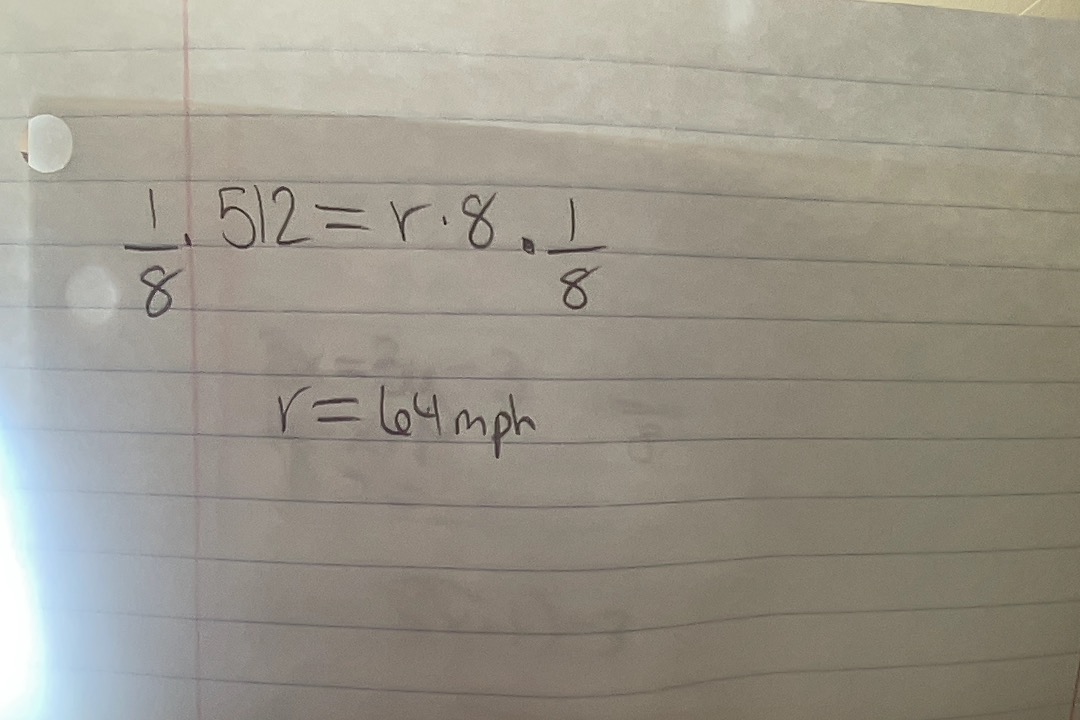 1/8 · 512 = r · 8 · 1/8
r = 64 mph